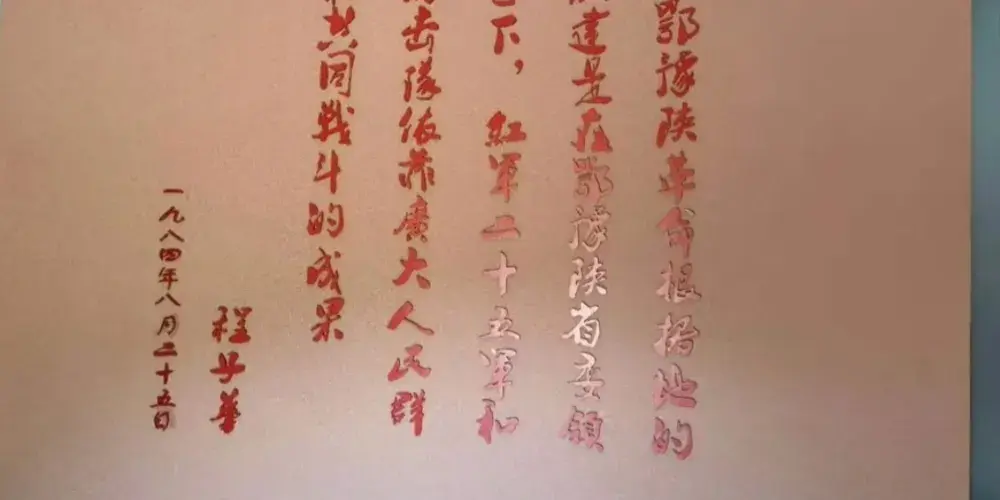 鄂豫陕革命根据地的
建是在鄂豫陕省委领
下，红军二十五军和
击隊依靠廣大人民群
共同戰斗的成果
程子華
一九八四年八月二十五日